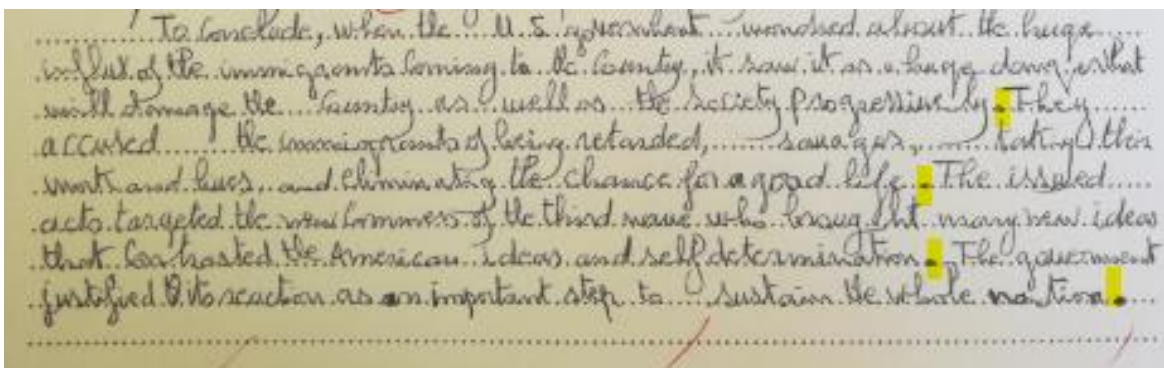 To conclude, when the U.S government worried about the huge
influx of the immigrants coming to the Country, it saw it as a huge dang that
will damage the Country as well as the Society progressively. They
accused the immigrants of being retarded, savages, taking their
work and lives, and eliminating the chance for a good life. The issued
acts targeted the new commers of the third wave who brought many new ideas
that Contrasted the American ideas and self determination. The government
justified its reaction as an important step to sustain the whole nation.